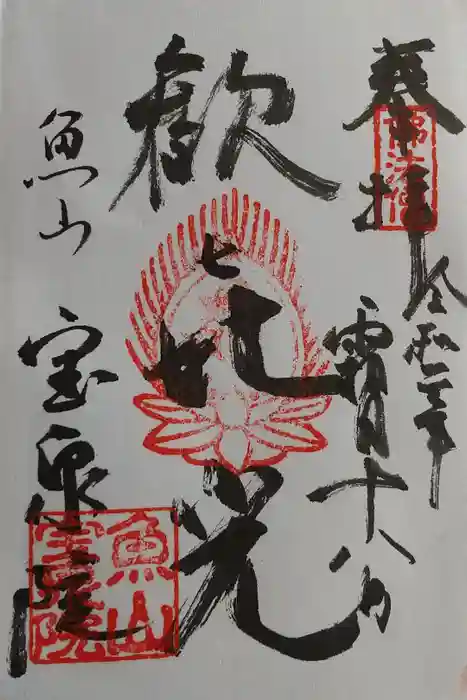 奉拝
令和二年
霜月十八日
佛法僧
歓㐂光
魚山
宝泉院
魚山
宝泉院